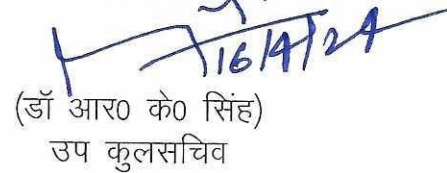 16/4/24
(डॉ आर० के० सिंह)
उप कुलसचिव